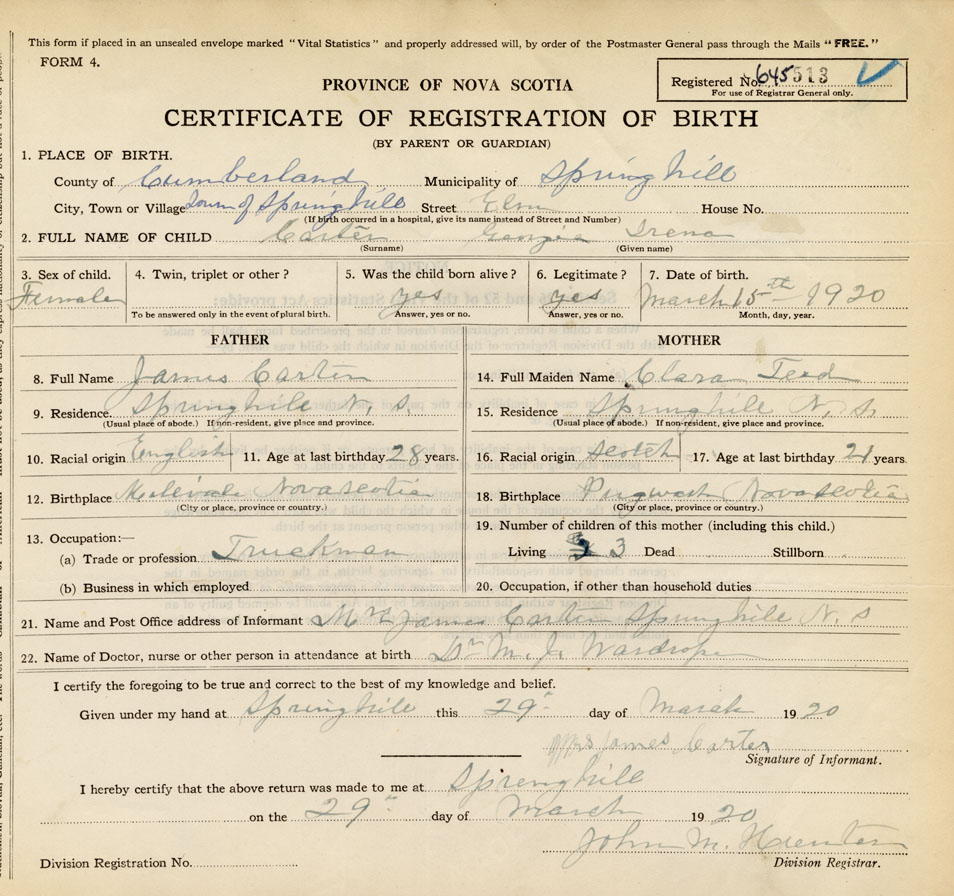 This form if placed in an unsealed envelope marked "Vital Statistics" and properly addressed will, by order of the Postmaster General pass through the Mails "FREE."
FORM 4.
Registered No. 645513
For use of Registrar General only.
PROVINCE OF NOVA SCOTIA
CERTIFICATE OF REGISTRATION OF BIRTH
(BY PARENT OR GUARDIAN)
1. PLACE OF BIRTH.
County of Cumberland Municipality of Springhill
City, Town or Village Town of Springhill Street Elm House No.
(If birth occurred in a hospital, give its name instead of Street and Number)
2. FULL NAME OF CHILD Carter Georgia Irena
(Surname) (Given name)
3. Sex of child. 4. Twin, triplet or other? 5. Was the child born alive? 6. Legitimate? 7. Date of birth.
Female yes yes March 15th 1920
To be answered only in the event of plural birth. Answer, yes or no. Answer, yes or no. Month, day, year.
FATHER MOTHER
8. Full Name James Carter 14. Full Maiden Name Clara Teed
9. Residence. Springhill N. S. 15. Residence Springhill N. S.
(Usual place of abode.) If non-resident, give place and province. (Usual place of abode.) If non-resident, give place and province.
10. Racial origin English 11. Age at last birthday 28 years. 16. Racial origin Scotch 17. Age at last birthday 21 years.
12. Birthplace Nova scotia 18. Birthplace Pugwash Nova scotia
(City or place, province or country.) (City or place, province or country.)
19. Number of children of this mother (including this child.)
13. Occupation:—
(a) Trade or profession Truckman Living 3 Dead Stillborn
(b) Business in which employed 20. Occupation, if other than household duties
21. Name and Post Office address of Informant Mrs James Carter Springhill N. S
22. Name of Doctor, nurse or other person in attendance at birth Dr M. J. Wardrope
I certify the foregoing to be true and correct to the best of my knowledge and belief.
Given under my hand at Springhill this 29th day of March 1920
Mrs James Carter
Signature of Informant.
I hereby certify that the above return was made to me at Springhill
on the 29th day of March 1920
John M. Hunter
Division Registration No. Division Registrar.